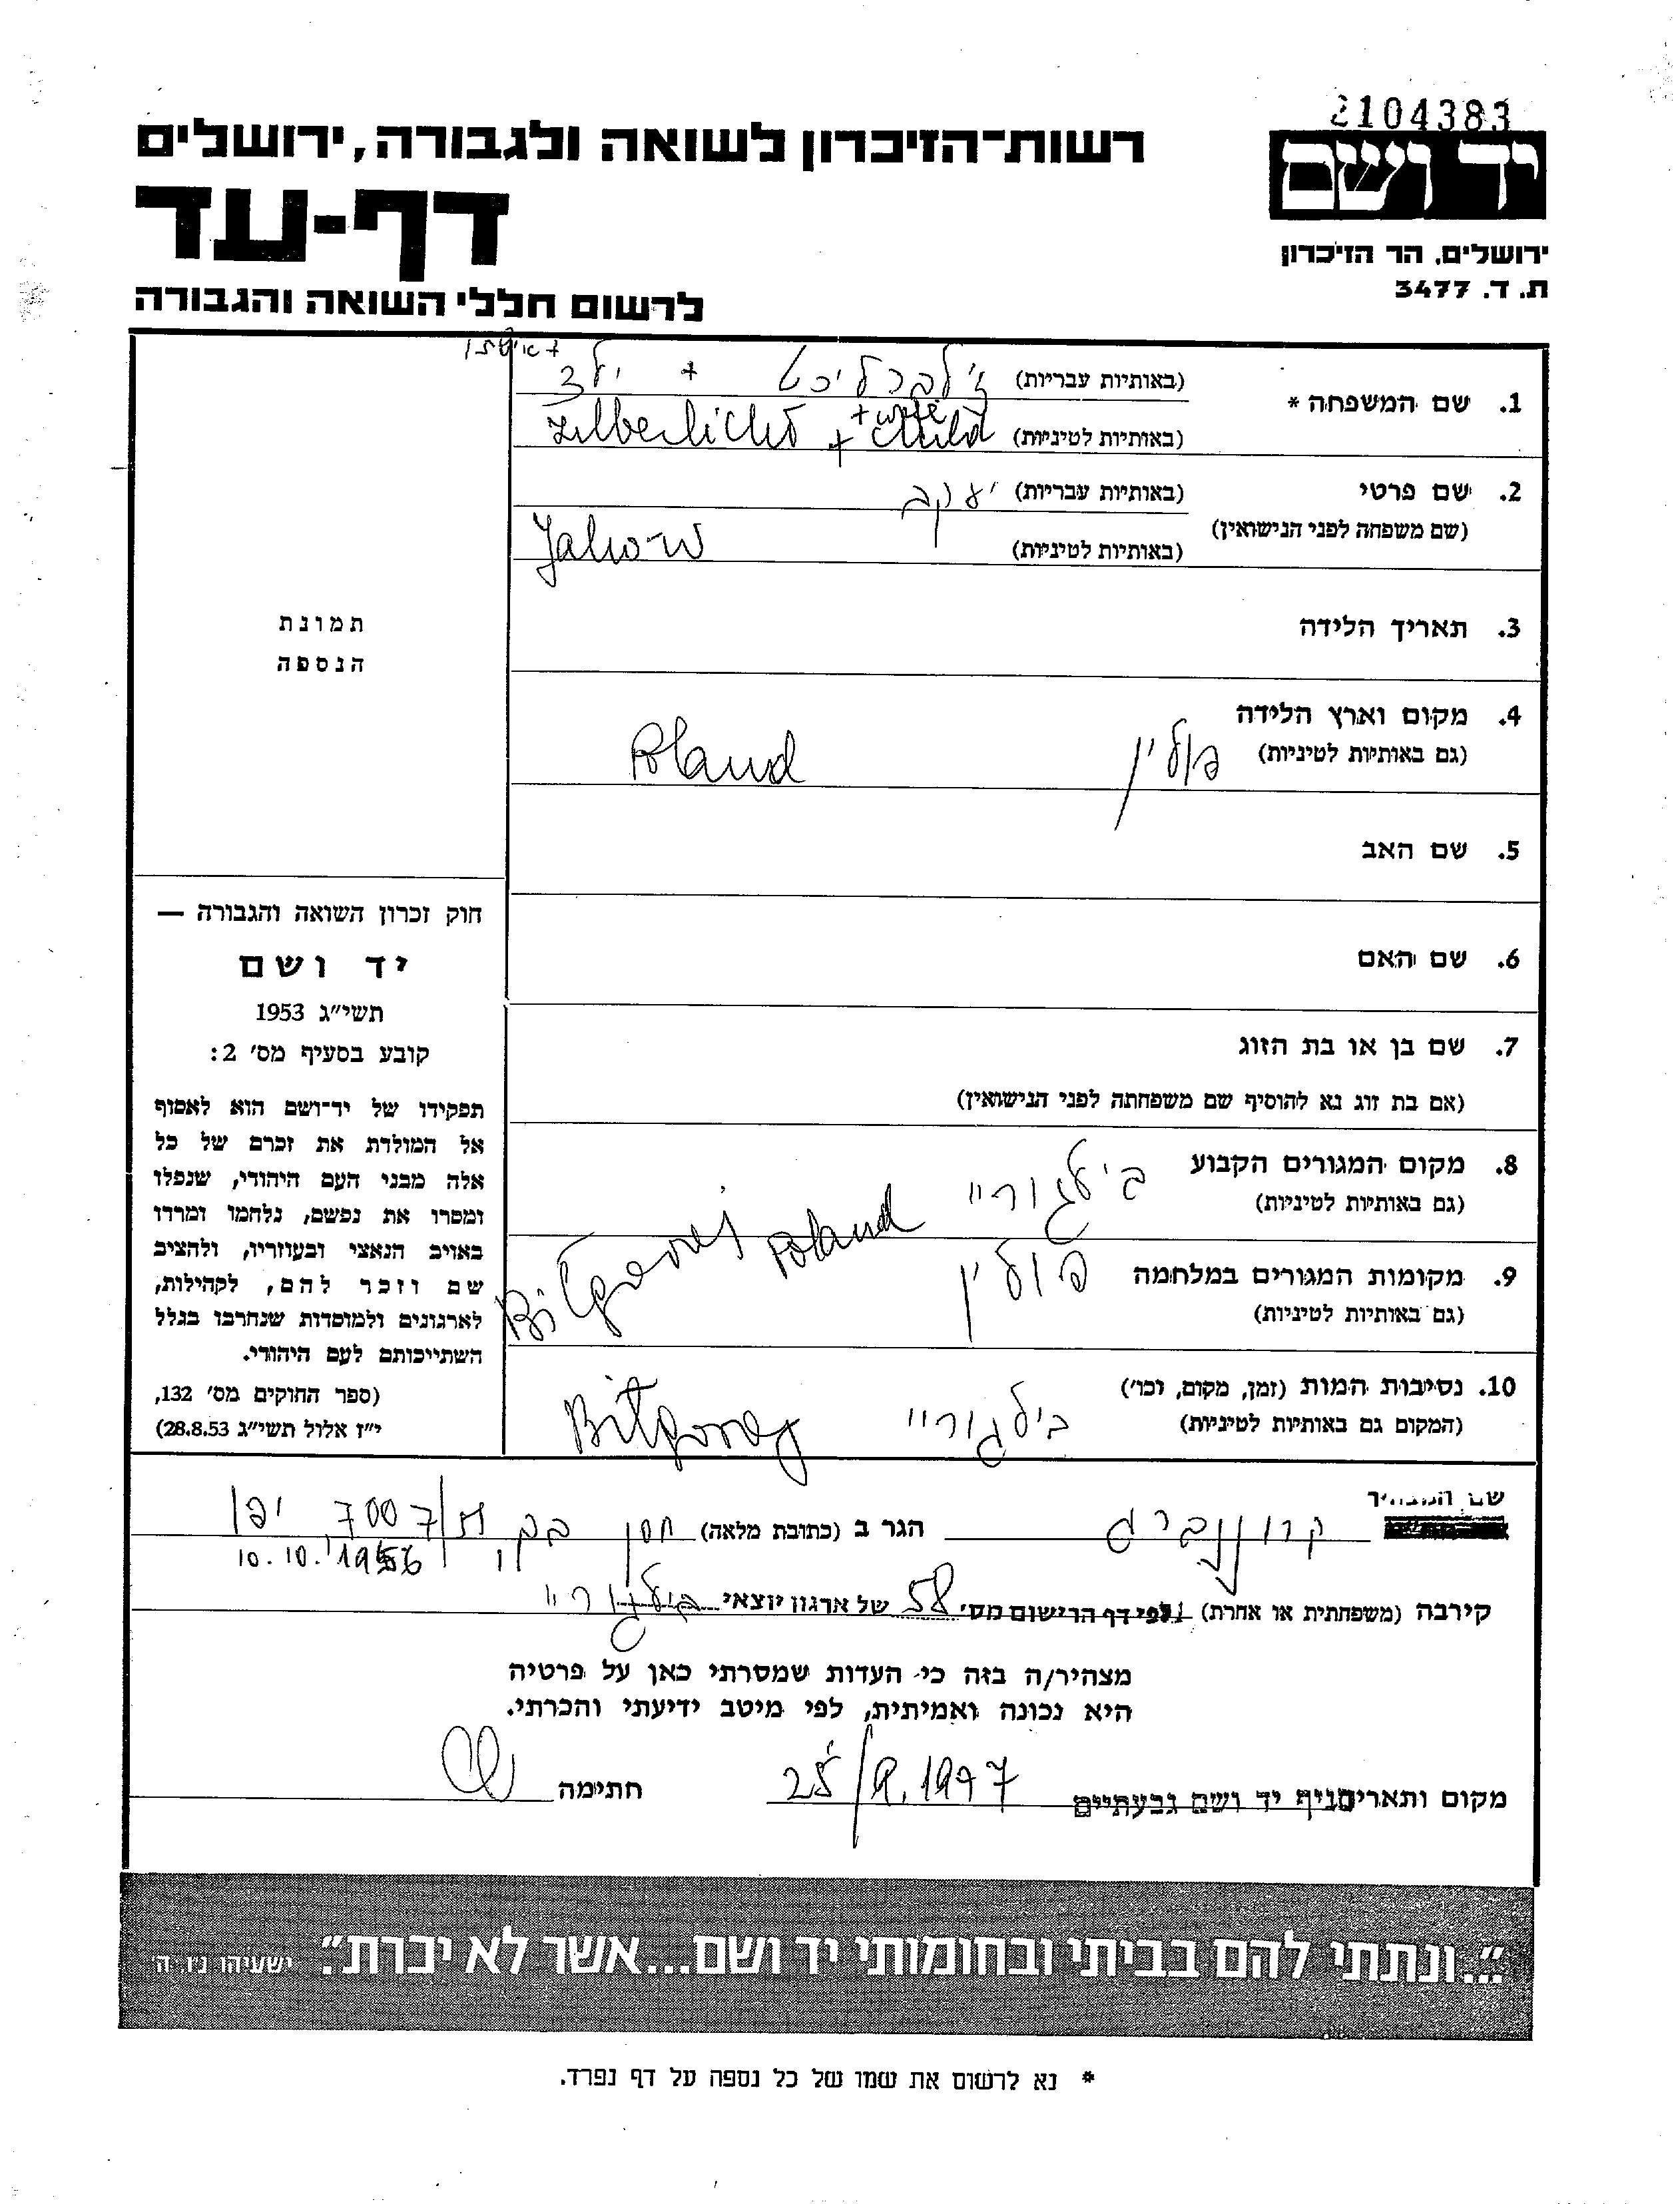 2104383
יד ושם
ירושלים, הר הזיכרון
ת. ד. 3477
רשות־הזיכרון לשואה ולגבורה, ירושלים
דף-עד
לרשום חללי השואה והגבורה
1. שם המשפחה *
(באותיות עבריות) זילברליכט + ילד
(באותיות לטיניות) Zilberlicht + child
+ wife
2. שם פרטי
(שם משפחה לפני הנישואין)
(באותיות עבריות) יעקב
(באותיות לטיניות)
3. תאריך הלידה
4. מקום וארץ הלידה
(גם באותיות לטיניות) פולין Poland
5. שם האב
6. שם האם
7. שם בן או בת הזוג
(אם בת זוג נא להוסיף שם משפחתה לפני הנישואין)
8. מקום המגורים הקבוע בילגוריי
(גם באותיות לטיניות) Poland
9. מקומות המגורים במלחמה פולין
(גם באותיות לטיניות)
10. נסיבות המות (זמן, מקום, וכו')
(המקום גם באותיות לטיניות) בילגוריי Bitgoraj
תמונת
הנספה
חוק זכרון השואה והגבורה —
יד ושם
תשי״ג 1953
קובע בסעיף מס׳ 2:
תפקידו של יד־ושם הוא לאסוף
אל המולדת את זכרם של כל
אלה מבני העם היהודי, שנפלו
ומסרו את נפשם, נלחמו ומרדו
באויב הנאצי ובעוזריו, ולהציב
שם וזכר להם, לקהילות,
לארגונים ולמוסדות שנחרבו בגלל
השתייכותם לעם היהודי.
(ספר החוקים מס׳ 132,
י״ז אלול תשי״ג 28.8.53)
שם המצהיר קרוננברג הגר ב (כתובת מלאה) חסן בק 7 יפו
10.10.1956
קירבה (משפחתית או אחרת) לפי דף הרישום מס׳ 58 של ארגון יוצאי בילגוריי
מצהיר/ה בזה כי העדות שמסרתי כאן על פרטיה
היא נכונה ואמיתית, לפי מיטב ידיעתי והכרתי.
מקום ותאריך סניף יד ושם גבעתיים 25/9.1997 חתימה
״...ונתתי להם בביתי ובחומותי יד ושם...אשר לא יכרת״. ישעיהו נ״ו, ה׳
* נא לרשום את שמו של כל נספה על דף נפרד.